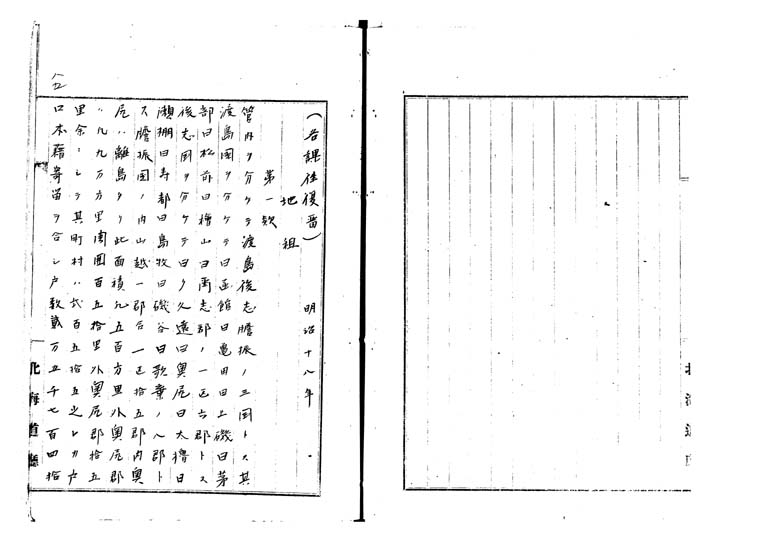 (各課往復番)　明治十八年
地租
第一款
管內ヲ分ケテ渡島後志膽振ノ三國トス其
渡島國ヲ分ケテ曰函館曰亀田曰上磯曰茅
部曰松前曰檜山ヨ爾志郡ノ一区六郡トス
後志國ヲ分ケテ曰ク久遠曰奥尻曰太櫓曰
瀬棚曰寿都曰島牧曰磯谷曰歌棄ノ八郡ト
ス膽振國ノ内山越一郡合一区拾五郡内奥
尻ハ離島タリ此面積九五百方里外奥尻郡
ハ九九万方里周圍百五拾里外奥尻郡拾五
里余ニシテ其町村ハ弐百五拾五之レカ戸
口本籍寄留ヲ合シ戸数貳万五千七百四拾
北海道廳